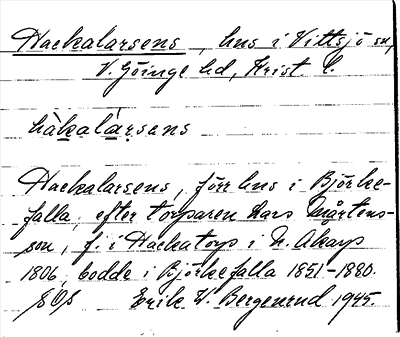 Hackalarsens, hus i Vittsjö sn,
V. Göinge hd, Krist. l.
hàkalàrsens
Hackalarsens, förr hus i Björke-
falla, efter torparen Lars Mårtens-
son, f. i Hackatorp i N. Åkarp
1806, bodde i Björkefalla 1851-1880.
Erik W. Bergenrud 1945.